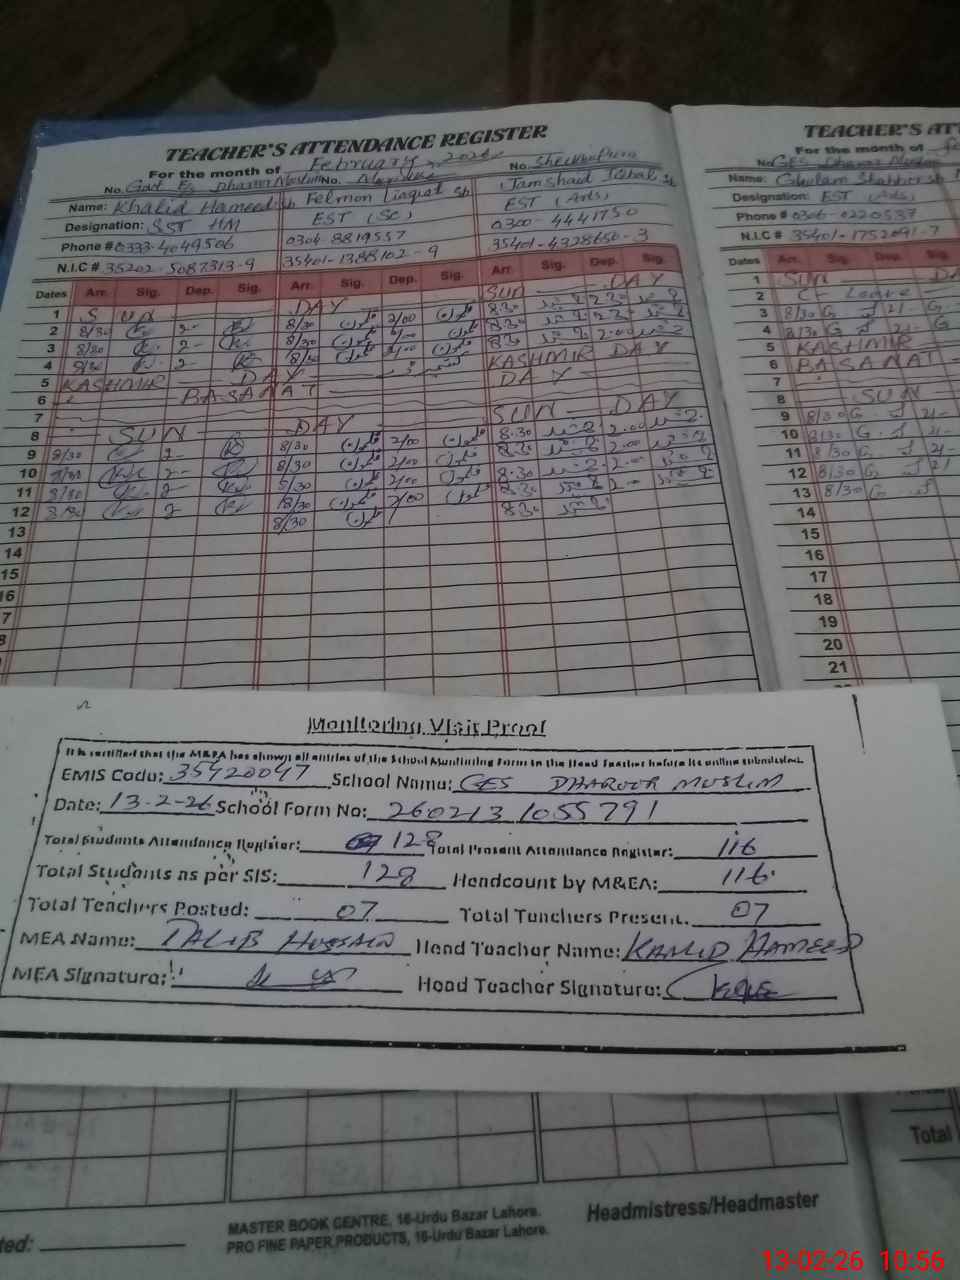 TEACHER'S ATTENDANCE REGISTER
For the month of February 2026
No. Govt ES Dharur Muslim No. No. Sheikhupura
Name: Khalid Hameed Felmon Liaqat Jamshaid Iqbal
Designation: SST HM EST (SC) EST (Arts)
Phone # 0333-4049506 0304-8819557 0300-4441750
N.I.C # 35202-5087313-9 35401-1388102-9 35401-4328650-3
Dates Arr. Sig. Dep. Sig. Arr. Sig. Dep. Sig. Arr. Sig. Dep. Sig.
1 SUN DAY SUN DAY
2 8/30 2- 8/30 2/00 8.30
3 8/30 2- 8/30 2/00 8.30
4 8/30 2- 8/30 2/00 8.30 2.00
5 KASHMIR DAY KASHMIR DAY
6 BASANAT DAY
7
8 SUN DAY SUN DAY
9 8/30 2- 8/30 2/00 8.30 2.00
10 8/30 2- 8/30 2/00 8.30 2.00
11 8/30 2 8/30 2/00 8.30 2-
12 8/30 2 8/30 2/00 8.30 2-
13 8/30 8.30
14
15
16
7
8
TEACHER'S ATT
For the month of
No. GES Dharur Muslim
Name: Ghulam Shabbir
Designation: EST (Arts)
Phone # 0306-0220537
N.I.C # 35401-1752091-7
Dates Arr. Sig. Dep. Sig.
1 SUN DA
2 C- Leave
3 8/30 G 2/- G
4 8/30 G 2/- G
5 KASHMIR
6 BASANAT
7
8 SUN
9 8/30 G 2/-
10 8/30 G 2/-
11 8/30 G 2/-
12 8/30 G 2/
13 8/30 G
14
15
16
17
18
19
20
21
Monitoring Visit Proof
It is certified that the M&EA has shown all entries of the School Monitoring Form to the Head Teacher before its online submission.
EMIS Code: 35420047 School Name: GES DHAROOR MUSLIM
Date: 13-2-26 School Form No: 260213 1055791
Total Students Attendance Register: 128 Total Present Attendance Register: 116
Total Students as per SIS: 128 Headcount by M&EA: 116
Total Teachers Posted: 07 Total Teachers Present. 07
MEA Name: TALIB HUSSAIN Head Teacher Name: KHALID HAMEED
MEA Signature: Head Teacher Signature:
Total
MASTER BOOK CENTRE, 16-Urdu Bazar Lahore.
PRO FINE PAPER PRODUCTS, 16-Urdu Bazar Lahore.
Headmistress/Headmaster
ted:
13-02-26 10:56